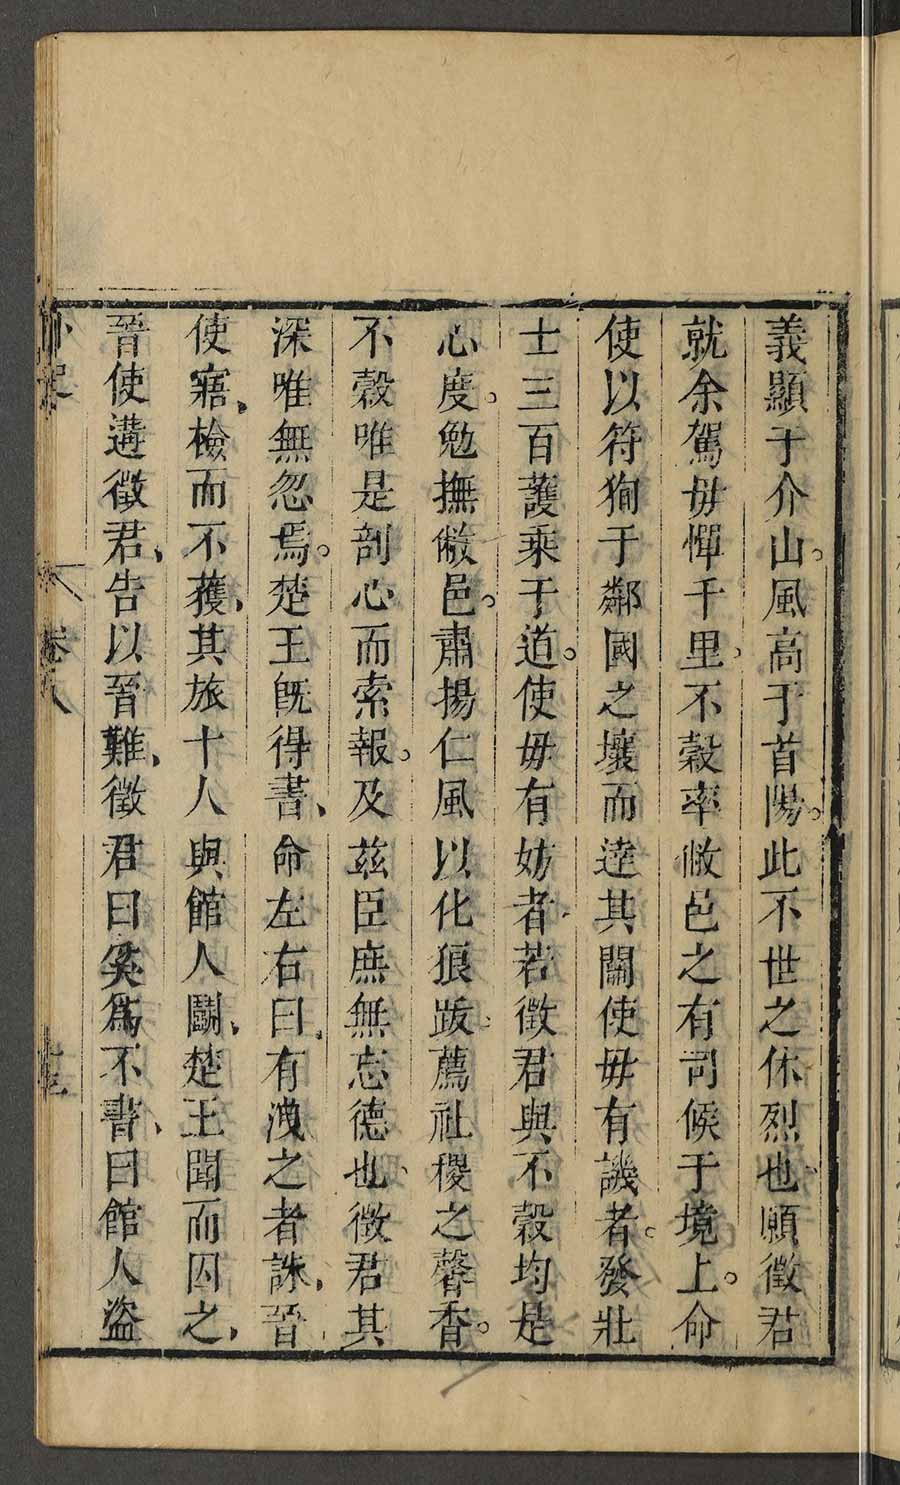 義顯于介山。風高于首陽。此不世之休烈也。願徵君
就余駕毋憚千里。不穀率敝邑之有司候于境上。命
使以符狥于鄰國之壤而逹其關使毋有譏者。發壯
士三百護乘于道。使毋有妨者。若徵君與不穀均是
心度。勉撫敝邑。肅揚仁風以化狼跋。薦社稷之馨香。
不穀唯是剖心而索報。及茲臣庶無忘德也。徵君其
深唯無忽焉。楚王旣得書、命左右曰、有洩之者誅、晉
使寤、檢而不獲、其旅十人與館人鬬、楚王聞而囚之、
晉使遘徵君、告以晉難、徵君曰奚爲不書、曰館人盜
卷 八